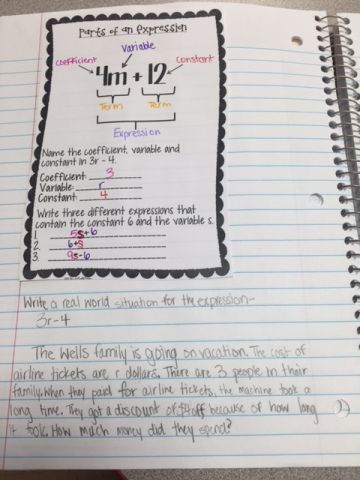 Parts of an Expression
Variable
Coefficient
Constant
4m + 12
Term Term
Expression
Name the coefficient, variable and
constant in 3r - 4.
Coefficient: 3
Variable: r
Constant: 4
Write three different expressions that
contain the constant 6 and the variable s.
1. 5s+6
2. 6+s
3. 9s-6
Write a real world situation for the expression-
3r-4
The Wells family is going on vacation. The cost of
airline tickets are r dollars. There are 3 people in their
family. When they paid for airline tickets, the machine took a
long time. They got a discount of $4 off because of how long
it took. How much money did they spend?